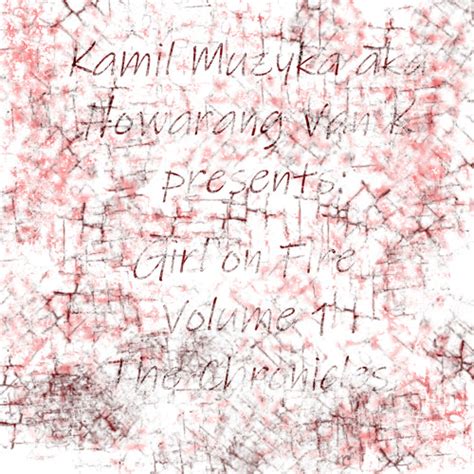 Kamil Muzyka aka
Howarang Van K
presents:
Girl on Fire
Volume
The Chronicles